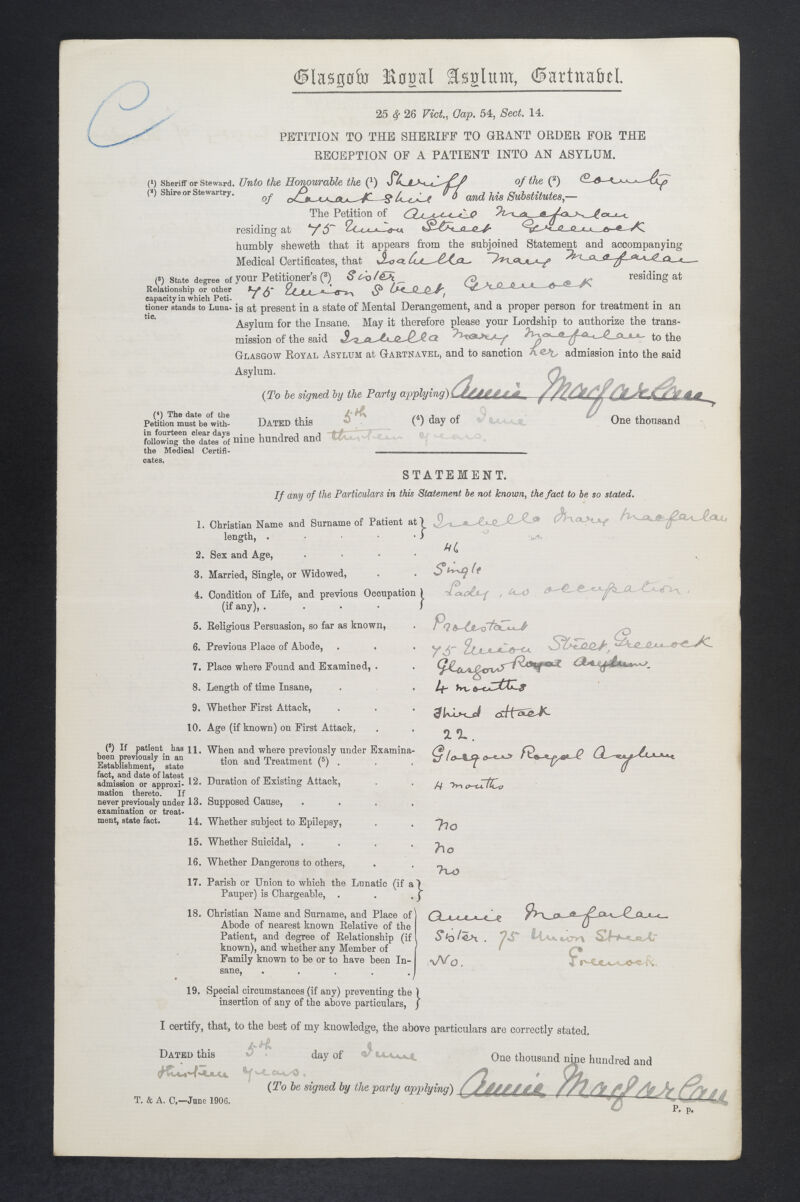 C
Glasgow Royal Asylum, Gartnavel.
25 & 26 Vict., Cap. 54, Sect. 14.
PETITION TO THE SHERIFF TO GRANT ORDER FOR THE
RECEPTION OF A PATIENT INTO AN ASYLUM.
(1) Sheriff or Steward.
(2) Shire or Stewartry.
Unto the Honourable the (1) Sheriff of the (2) County
of Lanarkshire and his Substitutes,—
The Petition of Annie Macfarlan
residing at 75 Union Street Greenock
humbly sheweth that it appears from the subjoined Statement and accompanying
Medical Certificates, that Isabella Mary Macfarlan
(3) State degree of
Relationship or other
capacity in which Peti-
tioner stands to Luna-
tic.
your Petitioner's (3) Sister residing at
75 Union Street, Greenock
is at present in a state of Mental Derangement, and a proper person for treatment in an
Asylum for the Insane. May it therefore please your Lordship to authorize the trans-
mission of the said Isabella Mary Macfarlan to the
GLASGOW ROYAL ASYLUM at GARTNAVEL, and to sanction her admission into the said
Asylum.
(To be signed by the Party applying) Annie Macfarlan
(4) The date of the
Petition must be with-
in fourteen clear days
following the dates of
the Medical Certifi-
cates.
DATED this 5th (4) day of June One thousand
nine hundred and thirteen years.
STATEMENT.
If any of the Particulars in this Statement be not known, the fact to be so stated.
1. Christian Name and Surname of Patient at length, . . . . . Isabella Mary Macfarlan
2. Sex and Age, . . . . 46
3. Married, Single, or Widowed, . . Single
4. Condition of Life, and previous Occupation (if any), . . . . Lady, no occupation.
5. Religious Persuasion, so far as known, . Protestant
6. Previous Place of Abode, . . . 75 Union Street, Greenock
7. Place where Found and Examined, . . Glasgow Royal Asylum.
8. Length of time Insane, . . 4 months
9. Whether First Attack, . . . Third attack
10. Age (if known) on First Attack, . . 22.
(5) If patient has
been previously in an
Establishment, state
fact, and date of latest
admission or approxi-
mation thereto. If
never previously under
examination or treat-
ment, state fact.
11. When and where previously under Examina-
tion and Treatment (5) . . . Glasgow Royal Asylum
12. Duration of Existing Attack, . . 4 months
13. Supposed Cause, . . . .
14. Whether subject to Epilepsy, . . No
15. Whether Suicidal, . . . . No
16. Whether Dangerous to others, . . No
17. Parish or Union to which the Lunatic (if a
Pauper) is Chargeable, . . .
18. Christian Name and Surname, and Place of
Abode of nearest known Relative of the
Patient, and degree of Relationship (if
known), and whether any Member of
Family known to be or to have been In-
sane, . . . . .
Annie Macfarlan
Sister. 75 Union Street
No. Greenock
19. Special circumstances (if any) preventing the
insertion of any of the above particulars,
I certify, that, to the best of my knowledge, the above particulars are correctly stated.
DATED this 5th day of June One thousand nine hundred and
thirteen years.
(To be signed by the party applying) Annie Macfarlan
T. & A. C.—June 1906.
P. p.